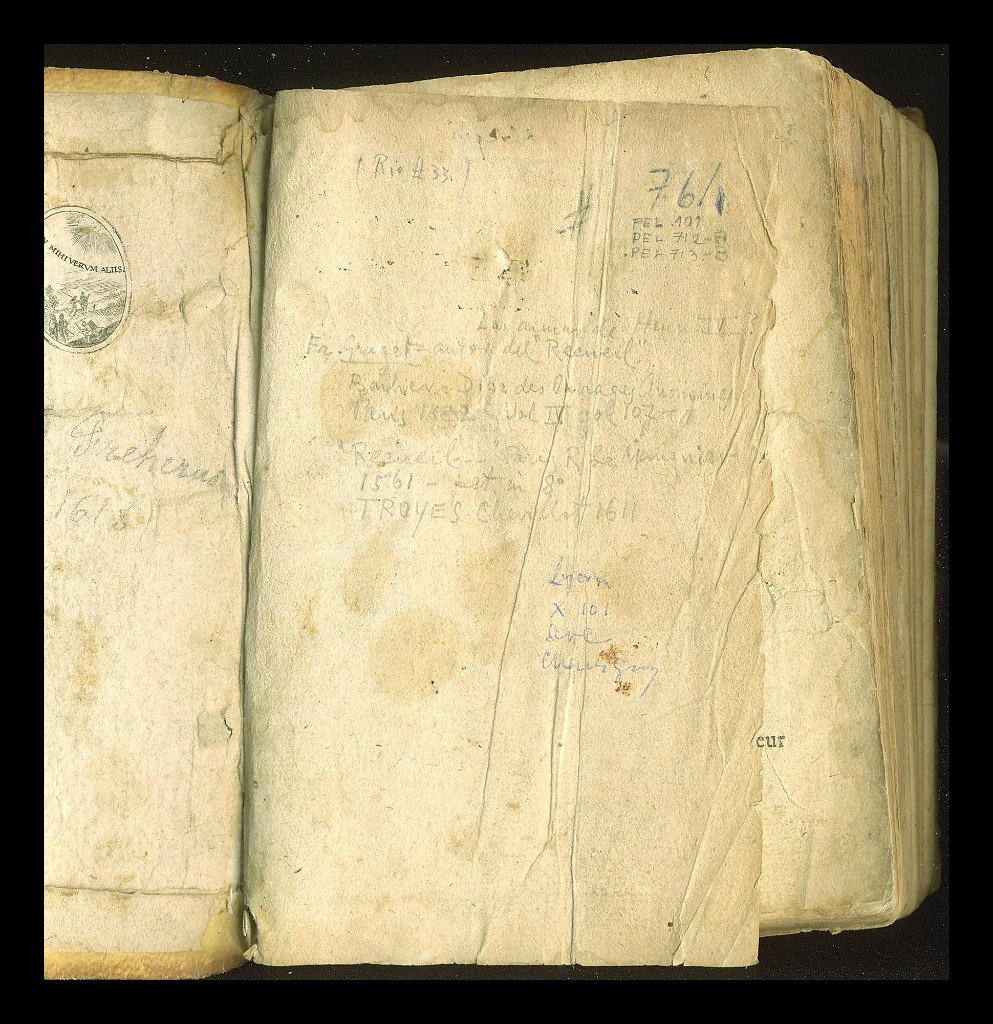 MIHI VERVM ALIIS
Freherus
1618
(Rio # 33.)
76/1
#
PEL 101
PEL 712-B
PEL 713-B
Henri IV?
Fr. Gruget = autor del "Recueil"
Barbier. Dict. des Ouvrages Anonimes
Paris 1882 - Vol IV col 107-
"Recueil..." Paris R. Le
1561 - et in 8°
TROYES Chevillot 1611
Lyon
X 101
ave
Chavigny
eur